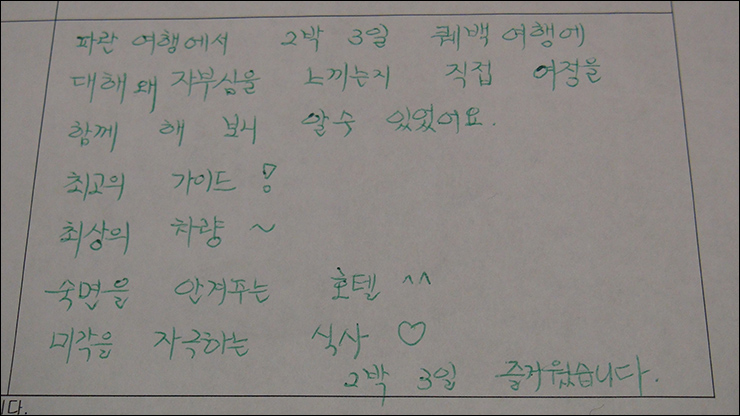 파란 여행에서 2박 3일 퀘백 여행에
대해 왜 자부심을 느끼는지 직접 여정을
함께 해 보니 알수 있었어요.
최고의 가이드!
최상의 차량 ~
숙면을 안겨주는 호텔 ^^
미각을 자극하는 식사 ♡
2박 3일 즐거웠습니다.
니다.